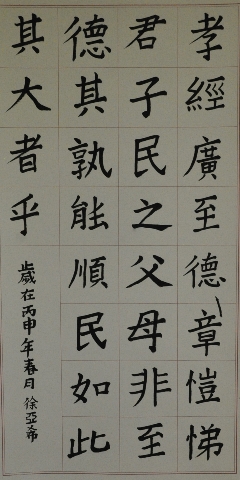 孝經廣至德章愷悌
君子民之父母非至
德其孰能順民如此
其大者乎
歲在丙申年春月徐亞希